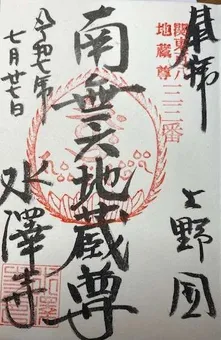 奉拝
上野国
関東百八
地蔵尊
番
南無六地蔵尊
水澤寺
令和七年
七月廿七日